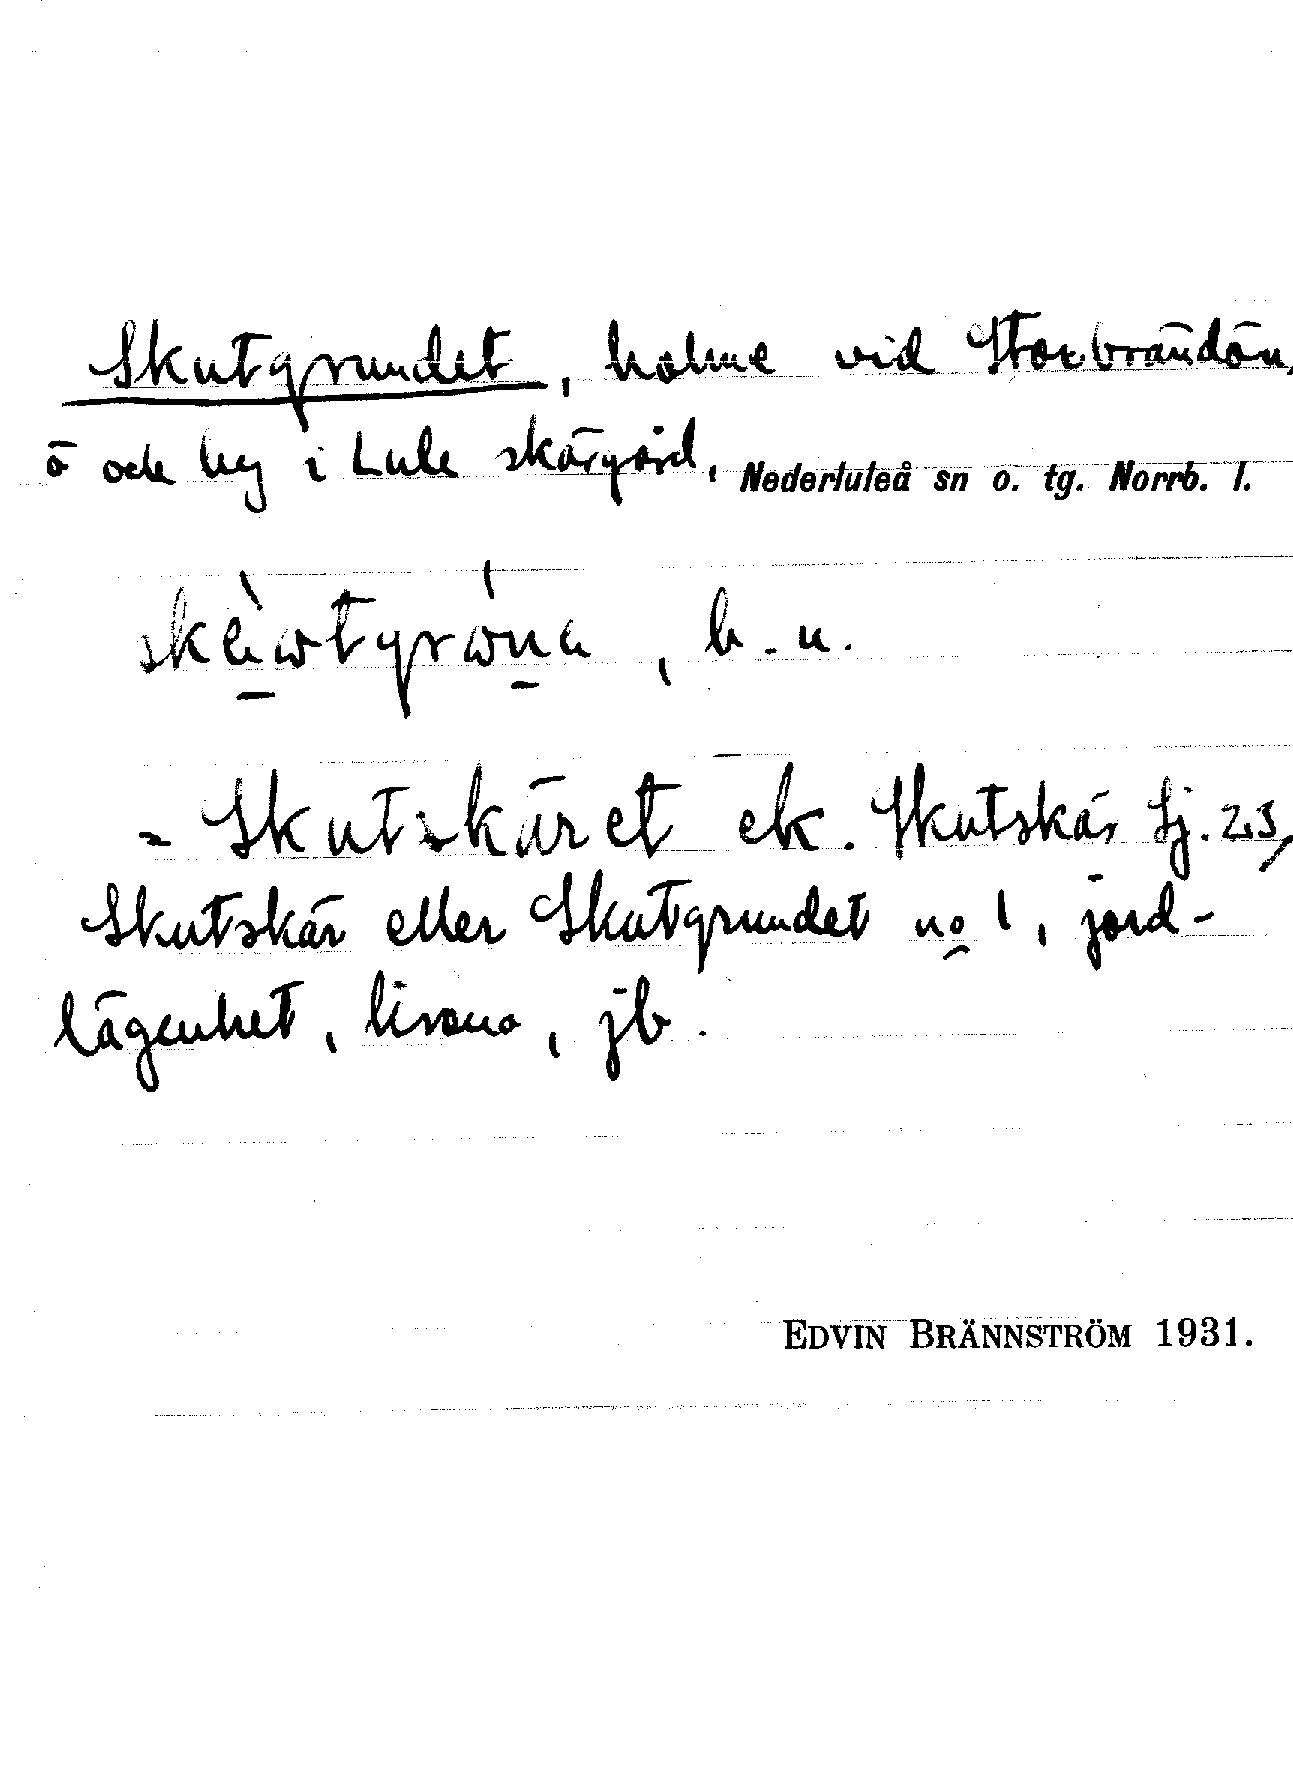 Skutgrundet, holme vid Storbrändön,
ö och by i Lule skärgård, Nederluleå sn o. tg. Norrb. l.
b. u.
= Skutskäret ek. Skutskär Sj. 23,
Skutskär eller Skutgrundet no 1, jord-
lägenhet, krono, jb.
EDVIN BRÄNNSTRÖM 1931.